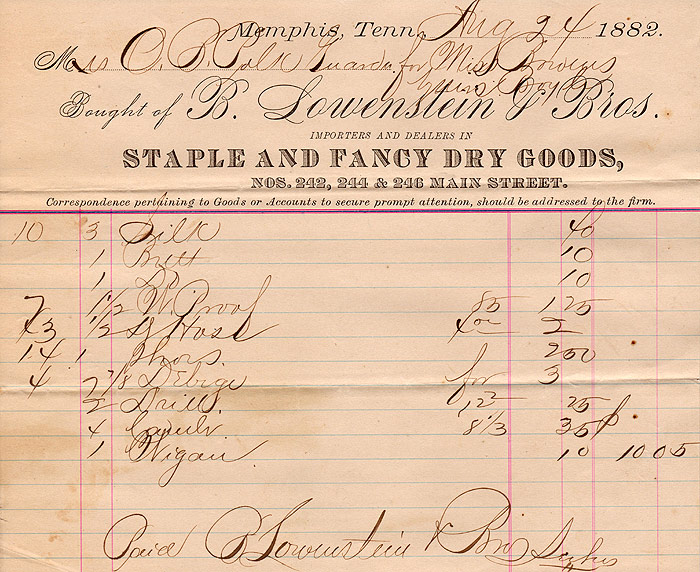 Memphis, Tenn, Aug 24 1882.
Mss O. B. Polk Guard. for Miss
Bought of B. Lowenstein & Bros.
IMPORTERS AND DEALERS IN
STAPLE AND FANCY DRY GOODS,
NOS. 242, 244 & 246 MAIN STREET.
Correspondence pertaining to Goods or Accounts to secure prompt attention, should be addressed to the firm.
10 3 Silk 40
1 10
1 Do 10
7 1 1/2 W. Proof 85 125
43 1/2 Hose 4 00 2
14 1 Shoes 200
4 7 7/8 DBeige for 3
2 Drill. 12 25
4 8 1/3 35
1 Wigan 10 10 05
Paid B Lowenstein & Bros